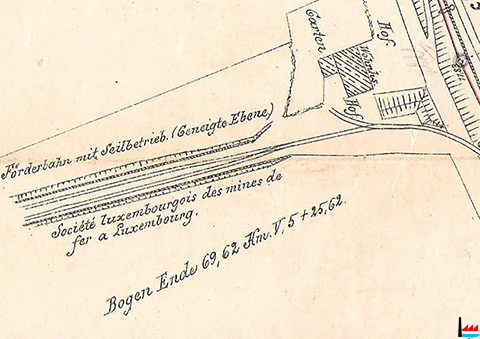 Hof
Garten
Wohnhs.
Hof
Förderbahn mit Seilbetrieb. (Geneigte Ebene)
Société luxembourgois des mines de
fer a Luxembourg.
Bogen Ende 69,62 Km. V, 5 + 25,62.